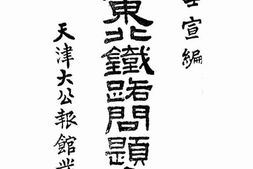 宣編
東北鐵路問題
天津大公報館